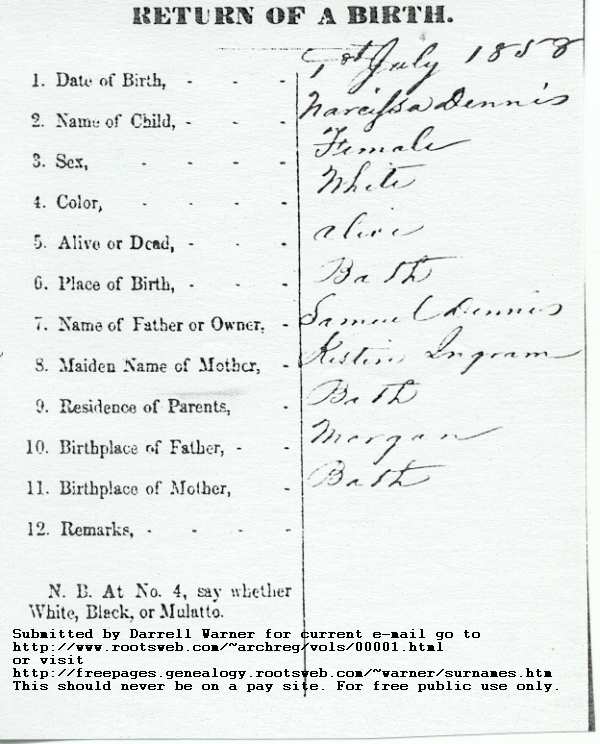 RETURN OF A BIRTH.
1. Date of Birth, - - - 1st July 1858
2. Name of Child, - - - Narcissa Dennis
3. Sex, - - - - Female
4. Color, - - - - White
5. Alive or Dead, - - - alive
6. Place of Birth, - - - Bath
7. Name of Father or Owner, - Samuel Dennis
8. Maiden Name of Mother, - Kestine Ingram
9. Residence of Parents, - Bath
10. Birthplace of Father, - - Morgan
11. Birthplace of Mother, - Bath
12. Remarks, - - - -
N. B. At No. 4, say whether
White, Black, or Mulatto.
Submitted by Darrell Warner for current e-mail go to
http://www.rootsweb.com/~archreg/vols/00001.html
or visit
http://freepages.genealogy.rootsweb.com/~warner/surnames.htm
This should never be on a pay site. For free public use only.